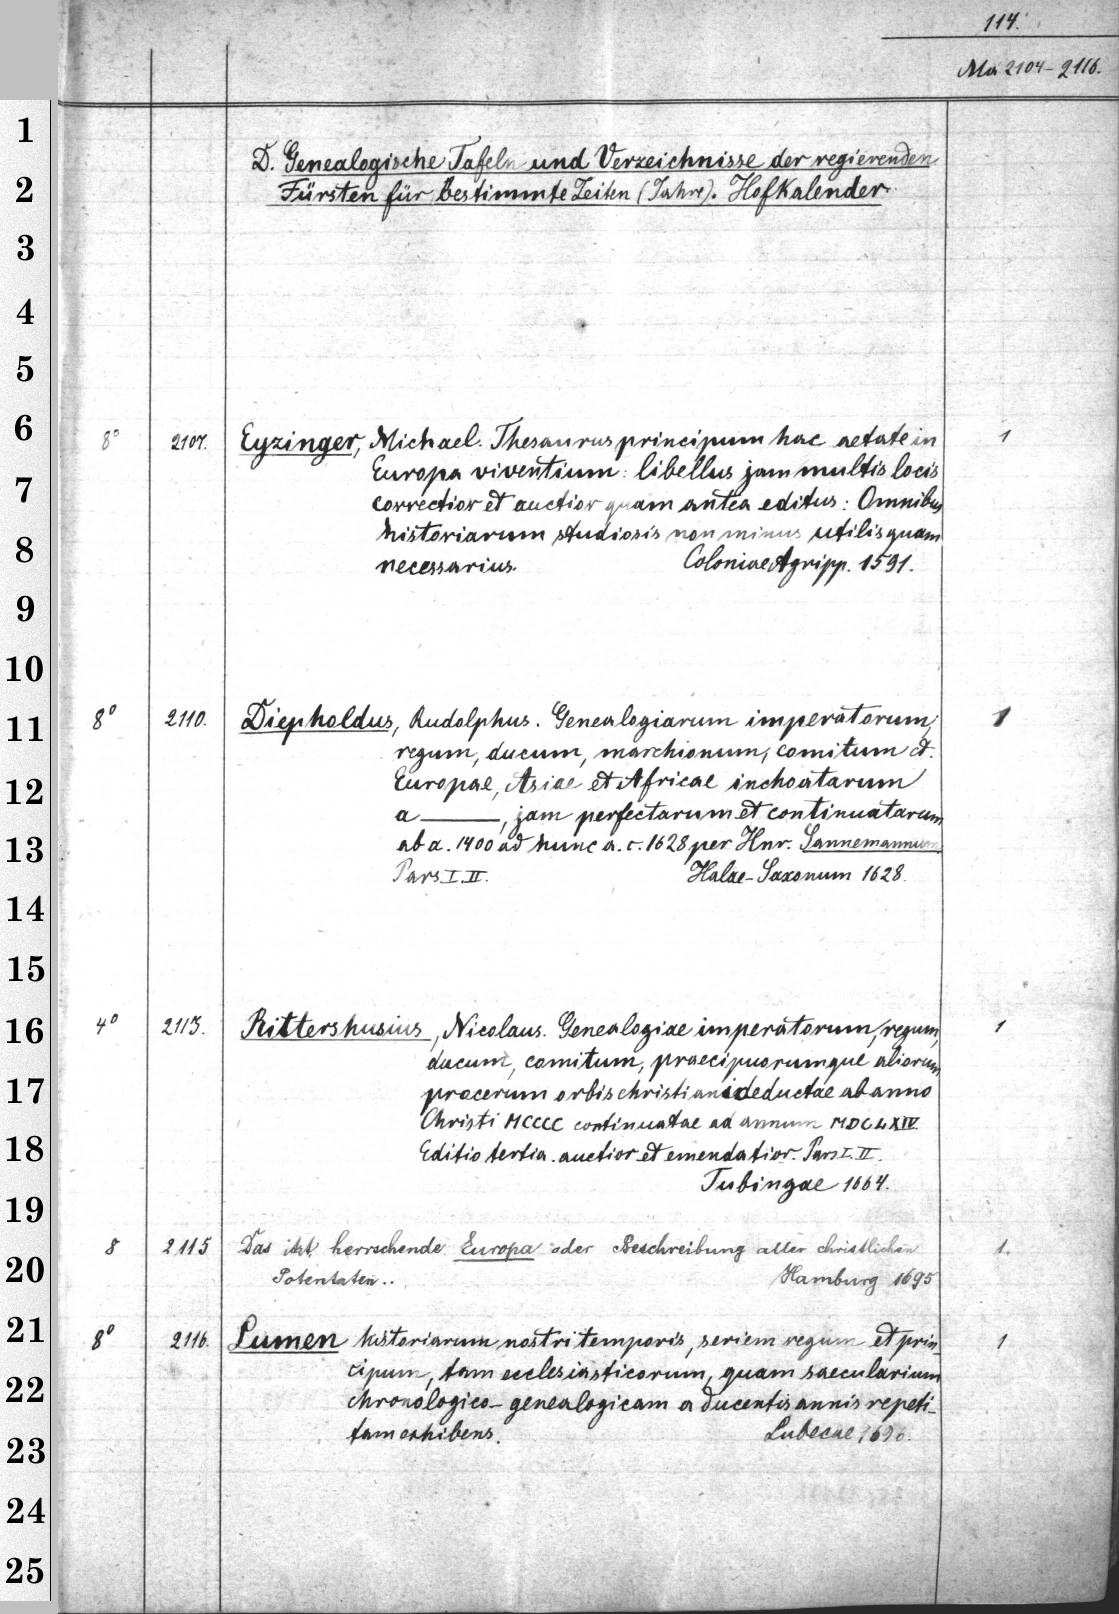 114.
Ma 2104-2116.
D. Genealogische Tafeln und Verzeichnisse der regierenden
Fürsten für bestimmte Zeiten (Jahre). Hofkalender.
8° 2107. Eyzinger, Michael. Thesaurus principum hac aetate in 1
Europa viventium: libellus jam multis locis
correctior et auctior quam antea editus: Omnibus
historiarum studiosis non minus utilis quam
necessarius. Coloniae Agripp. 1591.
8° 2110. Diepholdus, Rudolphus. Genealogiarum imperatorum, 1
regum, ducum, marchionum, comitum et.
Europae, Asiae et Africae inchoatarum
a ———, jam perfectarum et continuatarum
ab a. 1400 ad hunc a. c. 1628 per Hnr. Sannemannum.
Pars I. II. Halae-Saxonum 1628.
4° 2113. Rittershusius, Nicolaus. Genealogiae imperatorum, regum, 1
ducum, comitum, praecipuorumque aliorum
procerum orbis christiani deductae ab anno
Christi MCCCC continuatae ad annum MDCLXIV
Editio tertia auctior et emendatior. Pars I. II.
Tubingae 1664.
8 2115 Das itzt herrschende Europa oder Beschreibung aller christlichen 1.
Potentaten.. Hamburg 1695
8° 2116. Lumen historiarum nostri temporis, seriem regum et prin- 1
cipum, tam ecclesiasticorum, quam saecularium
chronologico-genealogicam a ducentis annis repeti-
tam exhibens. Lubecae 1690.
1
2
3
4
5
6
7
8
9
10
11
12
13
14
15
16
17
18
19
20
21
22
23
24
25